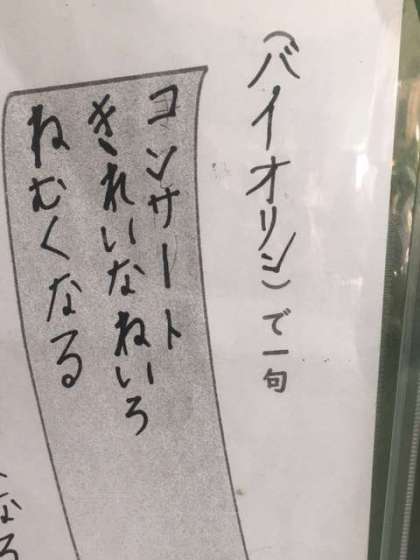 (バイオリン)で一句
コンサート
きれいなねいろ
ねむくなる
なる